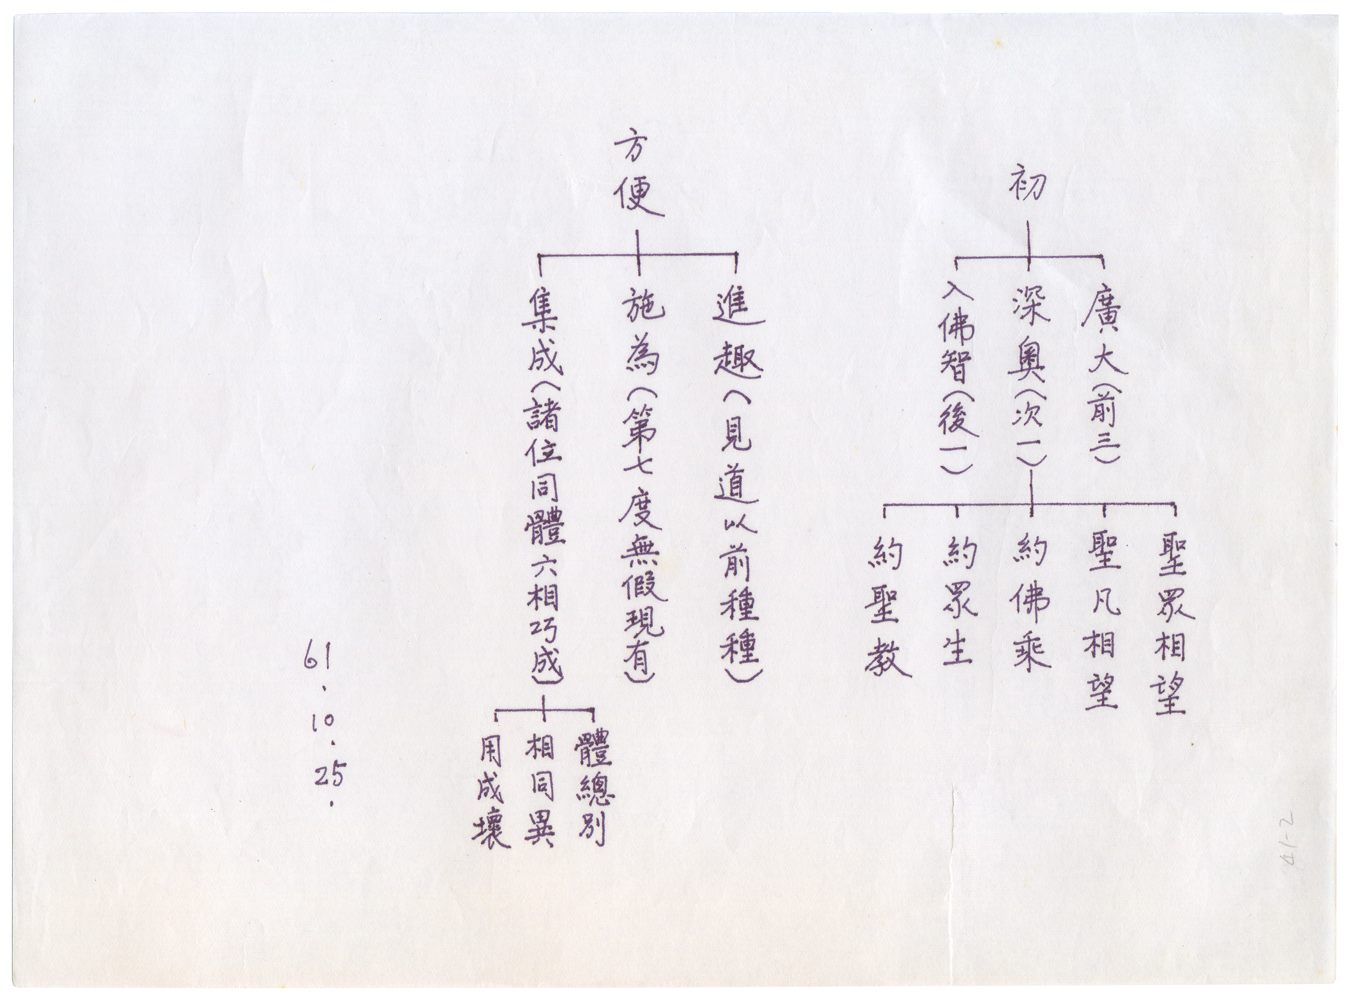 初
廣大(前三)
深奧(次一)
入佛智(後一)
聖眾相望
聖凡相望
約佛乘
約眾生
約聖教
方便
進趣(見道以前種種)
施為(第七度無假現有)
集成(諸位同體六相巧成)
體總別
相同異
用成壞
61.10.25.
41-2